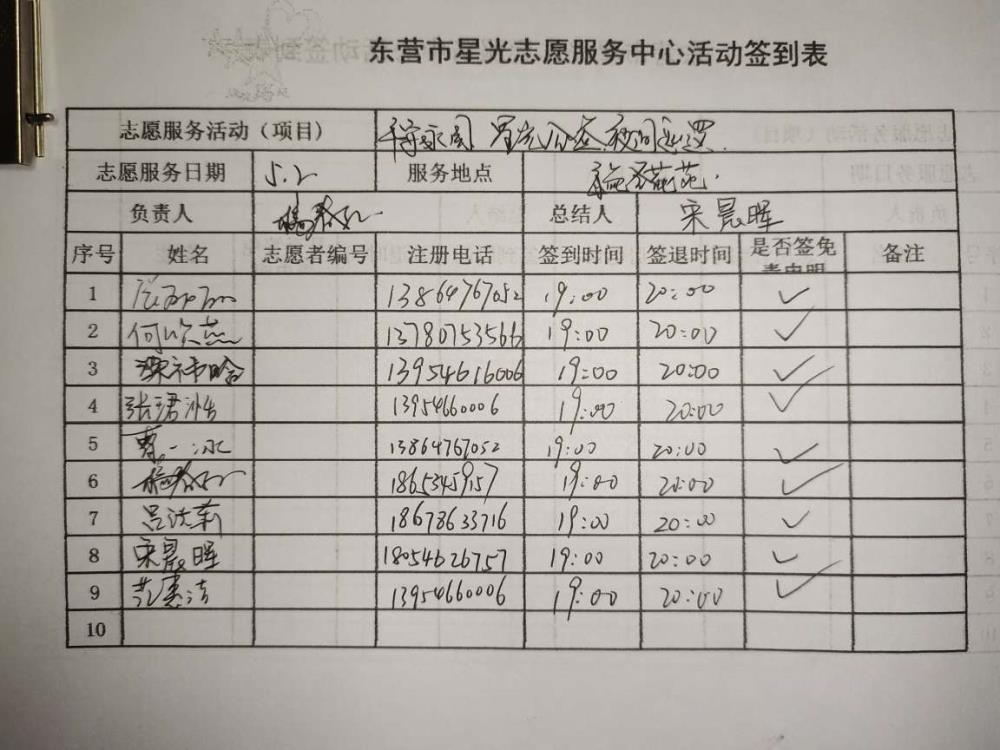 东营市星光志愿服务中心活动签到表
志愿服务活动（项目） 星光公益夜间巡逻.
志愿服务日期 5.2 服务地点
负责人 总结人 宋晨晖
序号 姓名 志愿者编号 注册电话 签到时间 签退时间 是否签免责申明 备注
1 13864767052 19:00 20:00 ✓
2 何 燕 13780753566 19:00 20:00 ✓
3 13954616006 19:00 20:00 ✓
4 张珺 13954660006 19:00 20:00 ✓
5 一冰 13864767052 19:00 20:00 ✓
6 18653459157 19:00 20:00 ✓
7 吕 莉 18678633716 19:00 20:00 ✓
8 宋晨晖 18054626757 19:00 20:00 ✓
9 洁 13954660006 19:00 20:00 ✓
10